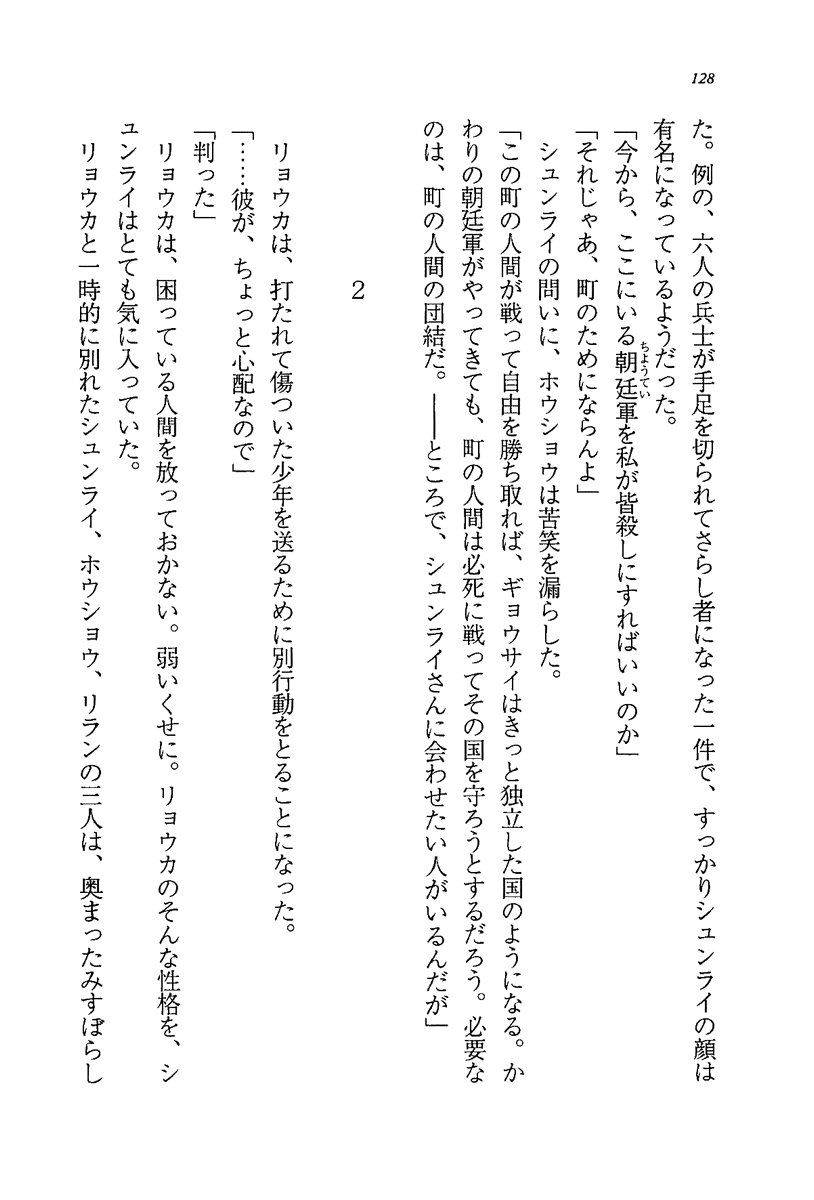 128
た。例の、六人の兵士が手足を切られてさらし者になった一件で、すっかりシュンライの顔は
有名になっているようだった。
「今から、ここにいる朝廷軍を私が皆殺しにすればいいのか」
ちようてい
「それじゃあ、町のためにならんよ」
シュンライの問いに、ホウショウは苦笑を漏らした。
「この町の人間が戦って自由を勝ち取れば、ギョウサイはきっと独立した国のようになる。か
わりの朝廷軍がやってきても、町の人間は必死に戦ってその国を守ろうとするだろう。必要な
のは、町の人間の団結だ。――ところで、シュンライさんに会わせたい人がいるんだが」
2
リョウカは、打たれて傷ついた少年を送るために別行動をとることになった。
「……彼が、ちょっと心配なので」
「判った」
リョウカは、困っている人間を放っておかない。弱いくせに。リョウカのそんな性格を、シ
ュンライはとても気に入っていた。
リョウカと一時的に別れたシュンライ、ホウショウ、リランの三人は、奥まったみすぼらし